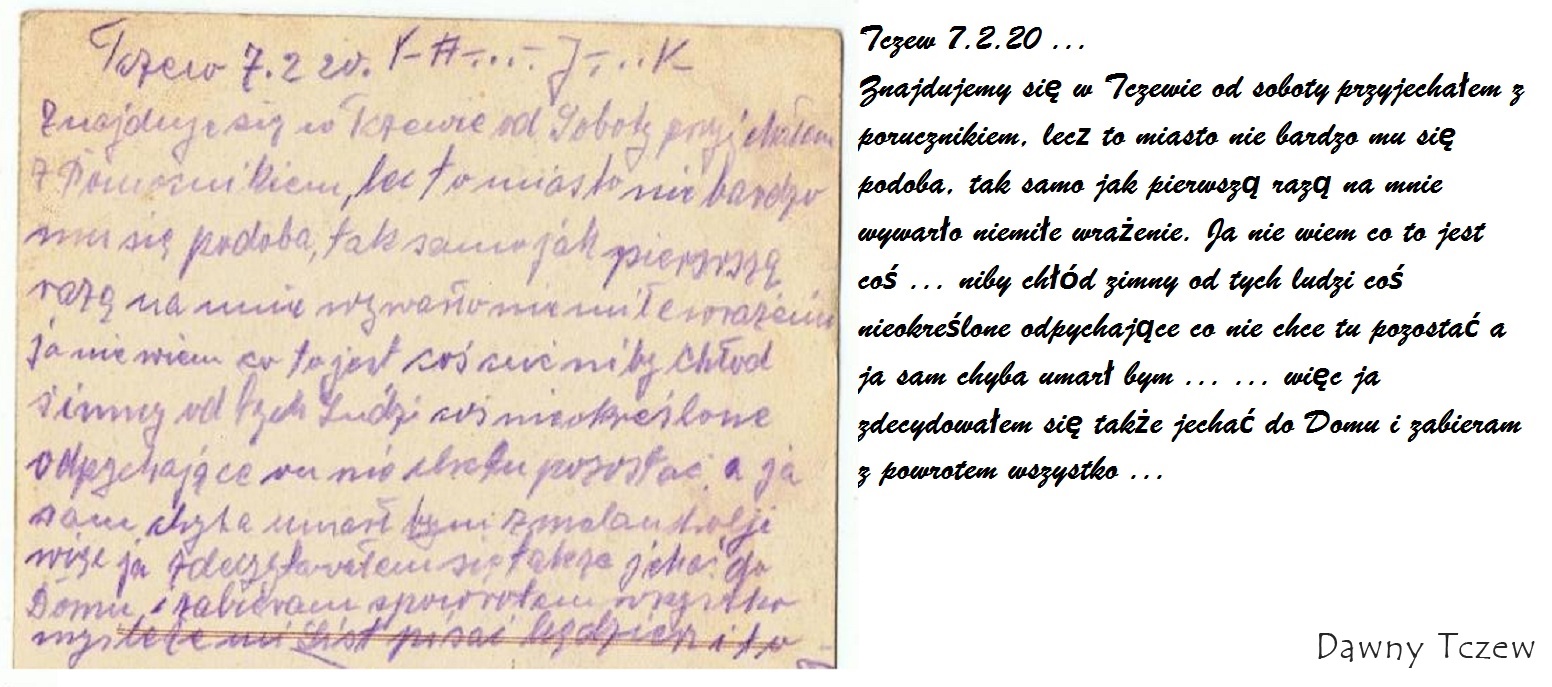 Tczew 7.2 20.
Znajduję się w Tczewie od Soboty przyjechałem
z Porucznikiem, lec to miasto nie bardzo
mu się podoba, tak samo jak pierwszą
razą na mnie wywarło niemiłe wrażenie
ja nie wiem co to jest coś niby chłod
simny od tych Ludzi coś nieokreślone
odpychające on nie chce tu pozostać a ja
sam chyba umarł bym z malancholji
więc ja zdecydowałem się także jechać do
Domu i zabieram spowrotem wszystko
List pisać będziesz i to
Tczew 7.2.20 ...
Znajdujemy się w Tczewie od soboty przyjechałem z
porucznikiem, lecz to miasto nie bardzo mu się
podoba, tak samo jak pierwszą razą na mnie
wywarło niemiłe wrażenie. Ja nie wiem co to jest
coś ... niby chłód zimny od tych ludzi coś
nieokreślone odpychające co nie chce tu pozostać a
ja sam chyba umarł bym ... ... więc ja
zdecydowałem się także jechać do Domu i zabieram
z powrotem wszystko ...
Dawny Tczew